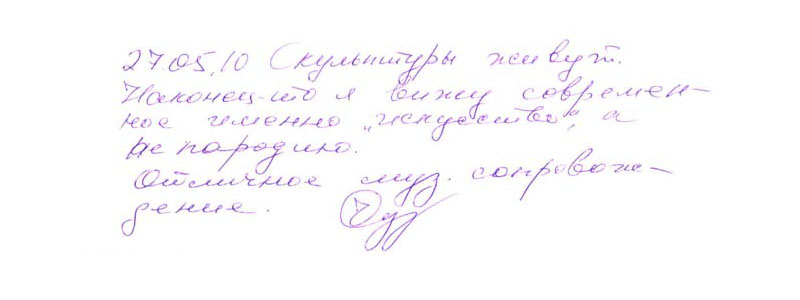 27.05.10 Скульптуры живут.
Наконец-то я вижу современ-
ное именно „искусство", а
не пародию.
Отличное муз. сопровож-
дение.